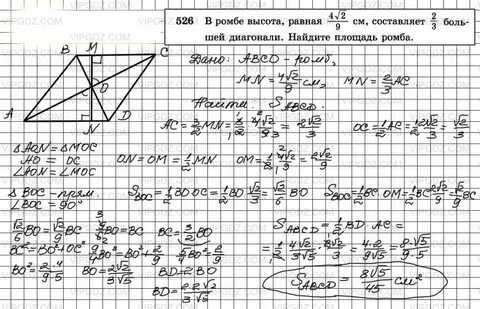 526 В ромбе высота, равная 4√2/9 см, составляет 2/3 боль-
шей диагонали. Найдите площадь ромба.
B M C
O
A N D
Дано: ABCD - ромб,
MN = 4√2/9 см, MN = 2/3 AC.
Найти: S ABCD.
OC = 1/2 AC = 1/2 · 2√2/3 = √2/3
△AON = △MOC
AO = OC
∠AON = ∠MOC
ON = OM = 1/2 MN OM = 1/2 · 4√2/9 = 2√2/9
△BOC - прям.
∠BOC = 90°
S BOC = 1/2 BO · OC = 1/2 BO · √2/3 = √2/6 BO
S BOC = 1/2 BC · OM = 1/2 BC · 2√2/9 = √2/9 BC
√2/6 BO = √2/9 BC
BC = 3/2 BO
BC² = BO² + OC² 9/4 BO² = BO² + 2/9
BO² = 2·4/9·5 BO = 2√2/3√5
BD = 2BO
BD = 2·2√2/3√5
S ABCD = 1/2 BD · AC =
S ABCD = 8√5/45 см²